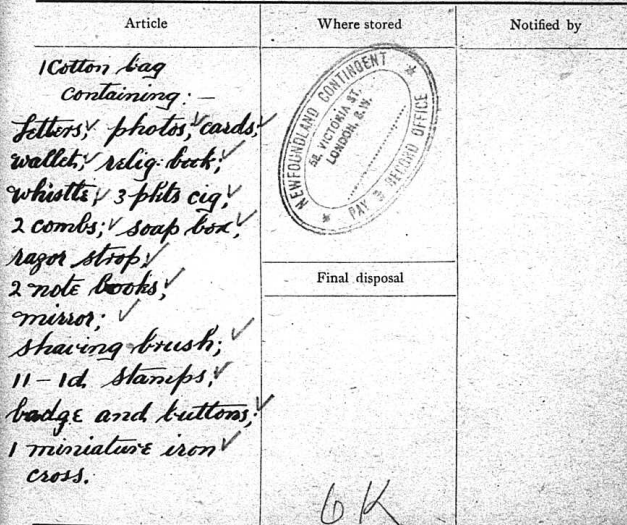 Article
1 Cotton bag
containing: —
Letters; photos; cards;
wallet; relig. book;
whistle; 3 pkts cig;
2 combs; soap box;
razor strop;
2 note books;
mirror;
shaving brush;
11 - 1d. stamps;
badge and buttons;
1 miniature iron
cross.
Where stored
NEWFOUNDLAND CONTINGENT
58, VICTORIA ST,
LONDON, S.W.
PAY & RECORD OFFICE
Final disposal
OK
Notified by